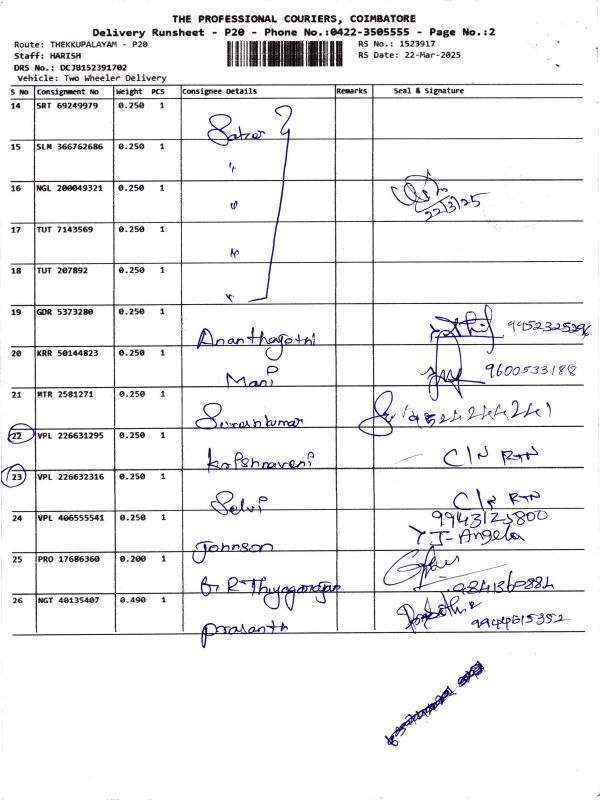 THE PROFESSIONAL COURIERS, COIMBATORE
Delivery Runsheet - P20 - Phone No.:0422-3505555 - Page No.:2
Route: THEKKUPALAYAM - P20
RS No.: 1523917
Staff: HARISH
RS Date: 22-Mar-2025
DRS No.: DCJB152391702
Vehicle: Two Wheeler Delivery
S No Consignment No Weight PCS Consignee Details Remarks Seal & Signature
14 SRT 69249979 0.250 1
15 SLM 366762686 0.250 1
16 NGL 200049321 0.250 1
22/3/25
17 TUT 7143569 0.250 1
18 TUT 207892 0.250 1
19 GDR 5373280 0.250 1
Ananthagothi
20 KRR 50144823 0.250 1
Mani 9600533188
21 MTR 2581271 0.250 1
Sureshkumar
22 VPL 226631295 0.250 1
C/N RTN
23 VPL 226632316 0.250 1
Selvi C/N RTN
24 VPL 406555541 0.250 1
9943125800
Johnson J-Angela
25 PRO 17686360 0.200 1
G R Thyagarajan
26 NGT 40135407 0.490 1
Prasanth 9944615352